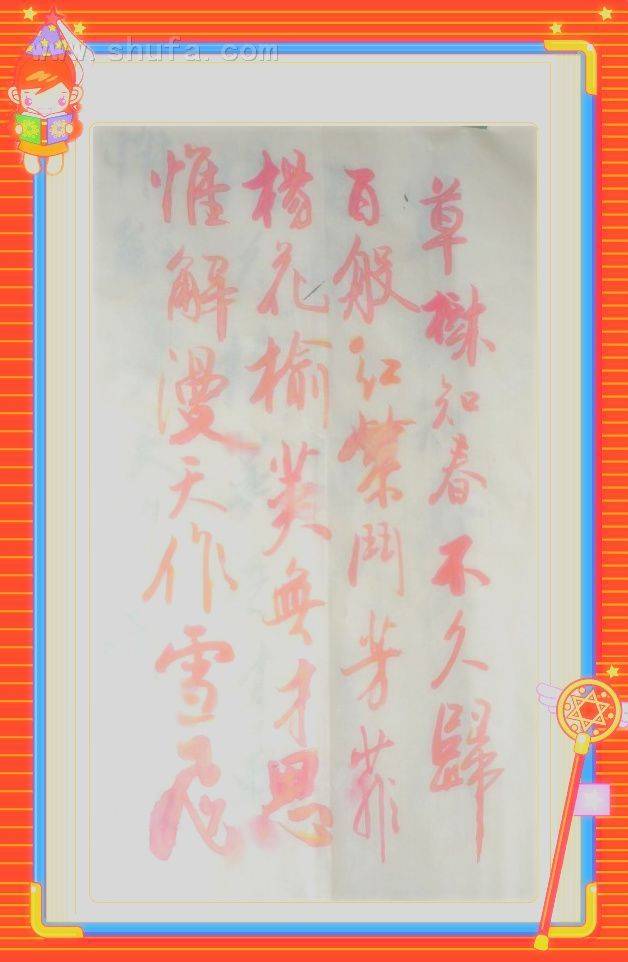 www.shufa.com
草樹知春不久歸
百般紅紫鬥芳菲
楊花榆莢無才思
惟解漫天作雪飛